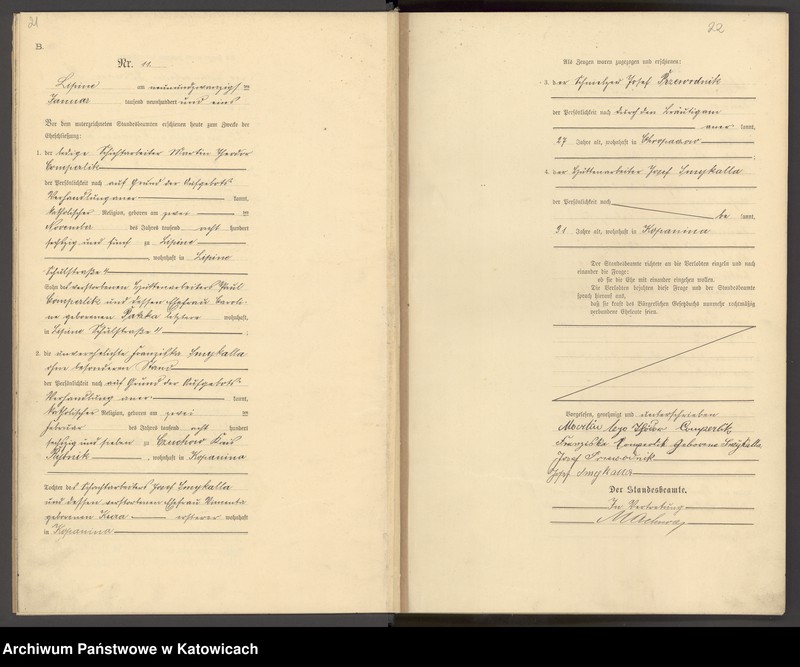 21
B.
Nr. 11.
Lipine am neunundzwanzigsten
Januar tausend neunhundert und eins
Vor dem unterzeichneten Standesbeamten erschienen heute zum Zwecke der
Eheschließung:
1. der ledige Schichtarbeiter Martin Theodor
Comperlik
der Persönlichkeit nach auf Grund der Aufgebots-
Verhandlung aner kannt,
katholischer Religion, geboren am zwei ten
November des Jahres tausend acht hundert
sechzig und fünf zu Lipine
, wohnhaft in Lipine
Schulstraße 4
Sohn des verstorbenen Hüttenarbeiters Paul
Comperlik und dessen Ehefrau Caroli-
ne geborenen letztere wohnhaft,
in Lipine Schulstraße 4 ;
2. die unverehelichte Franziska Smykalla
ohne besonderen Stand
der Persönlichkeit nach auf Grund der Aufgebots-
Verhandlung aner kannt,
katholischer Religion, geboren am zwei ten
Februar des Jahres tausend acht hundert
sechzig und sieben zu Kreis
Rybnik , wohnhaft in Kopanina
Tochter des Schichtarbeiters Josef Smykalla
und dessen verstorbenen Ehefrau
geborenen Kura ersterer wohnhaft
in Kopanina
22
Als Zeugen waren zugezogen und erschienen:
3. der Schmelzer Josef Przewodnik
der Persönlichkeit nach durch den Bräutigam
aner kannt,
27 Jahre alt, wohnhaft in Chropaczow
;
4. der Hüttenarbeiter Josef Smykalla
der Persönlichkeit nach
be kannt,
21 Jahre alt, wohnhaft in Kopanina
Der Standesbeamte richtete an die Verlobten einzeln und nach
einander die Frage:
ob sie die Ehe mit einander eingehen wollen.
Die Verlobten bejahten diese Frage und der Standesbeamte
sprach hierauf aus,
daß sie kraft des Bürgerlichen Gesetzbuchs nunmehr rechtmäßig
verbundene Eheleute seien.
Vorgelesen, genehmigt und unterschrieben
Martin Comperlik
Franziska Comperlik geborene Smykalla
Josef Przewodnik
Josef Smykalla
Der Standesbeamte.
In Vertretung
Archiwum Państwowe w Katowicach